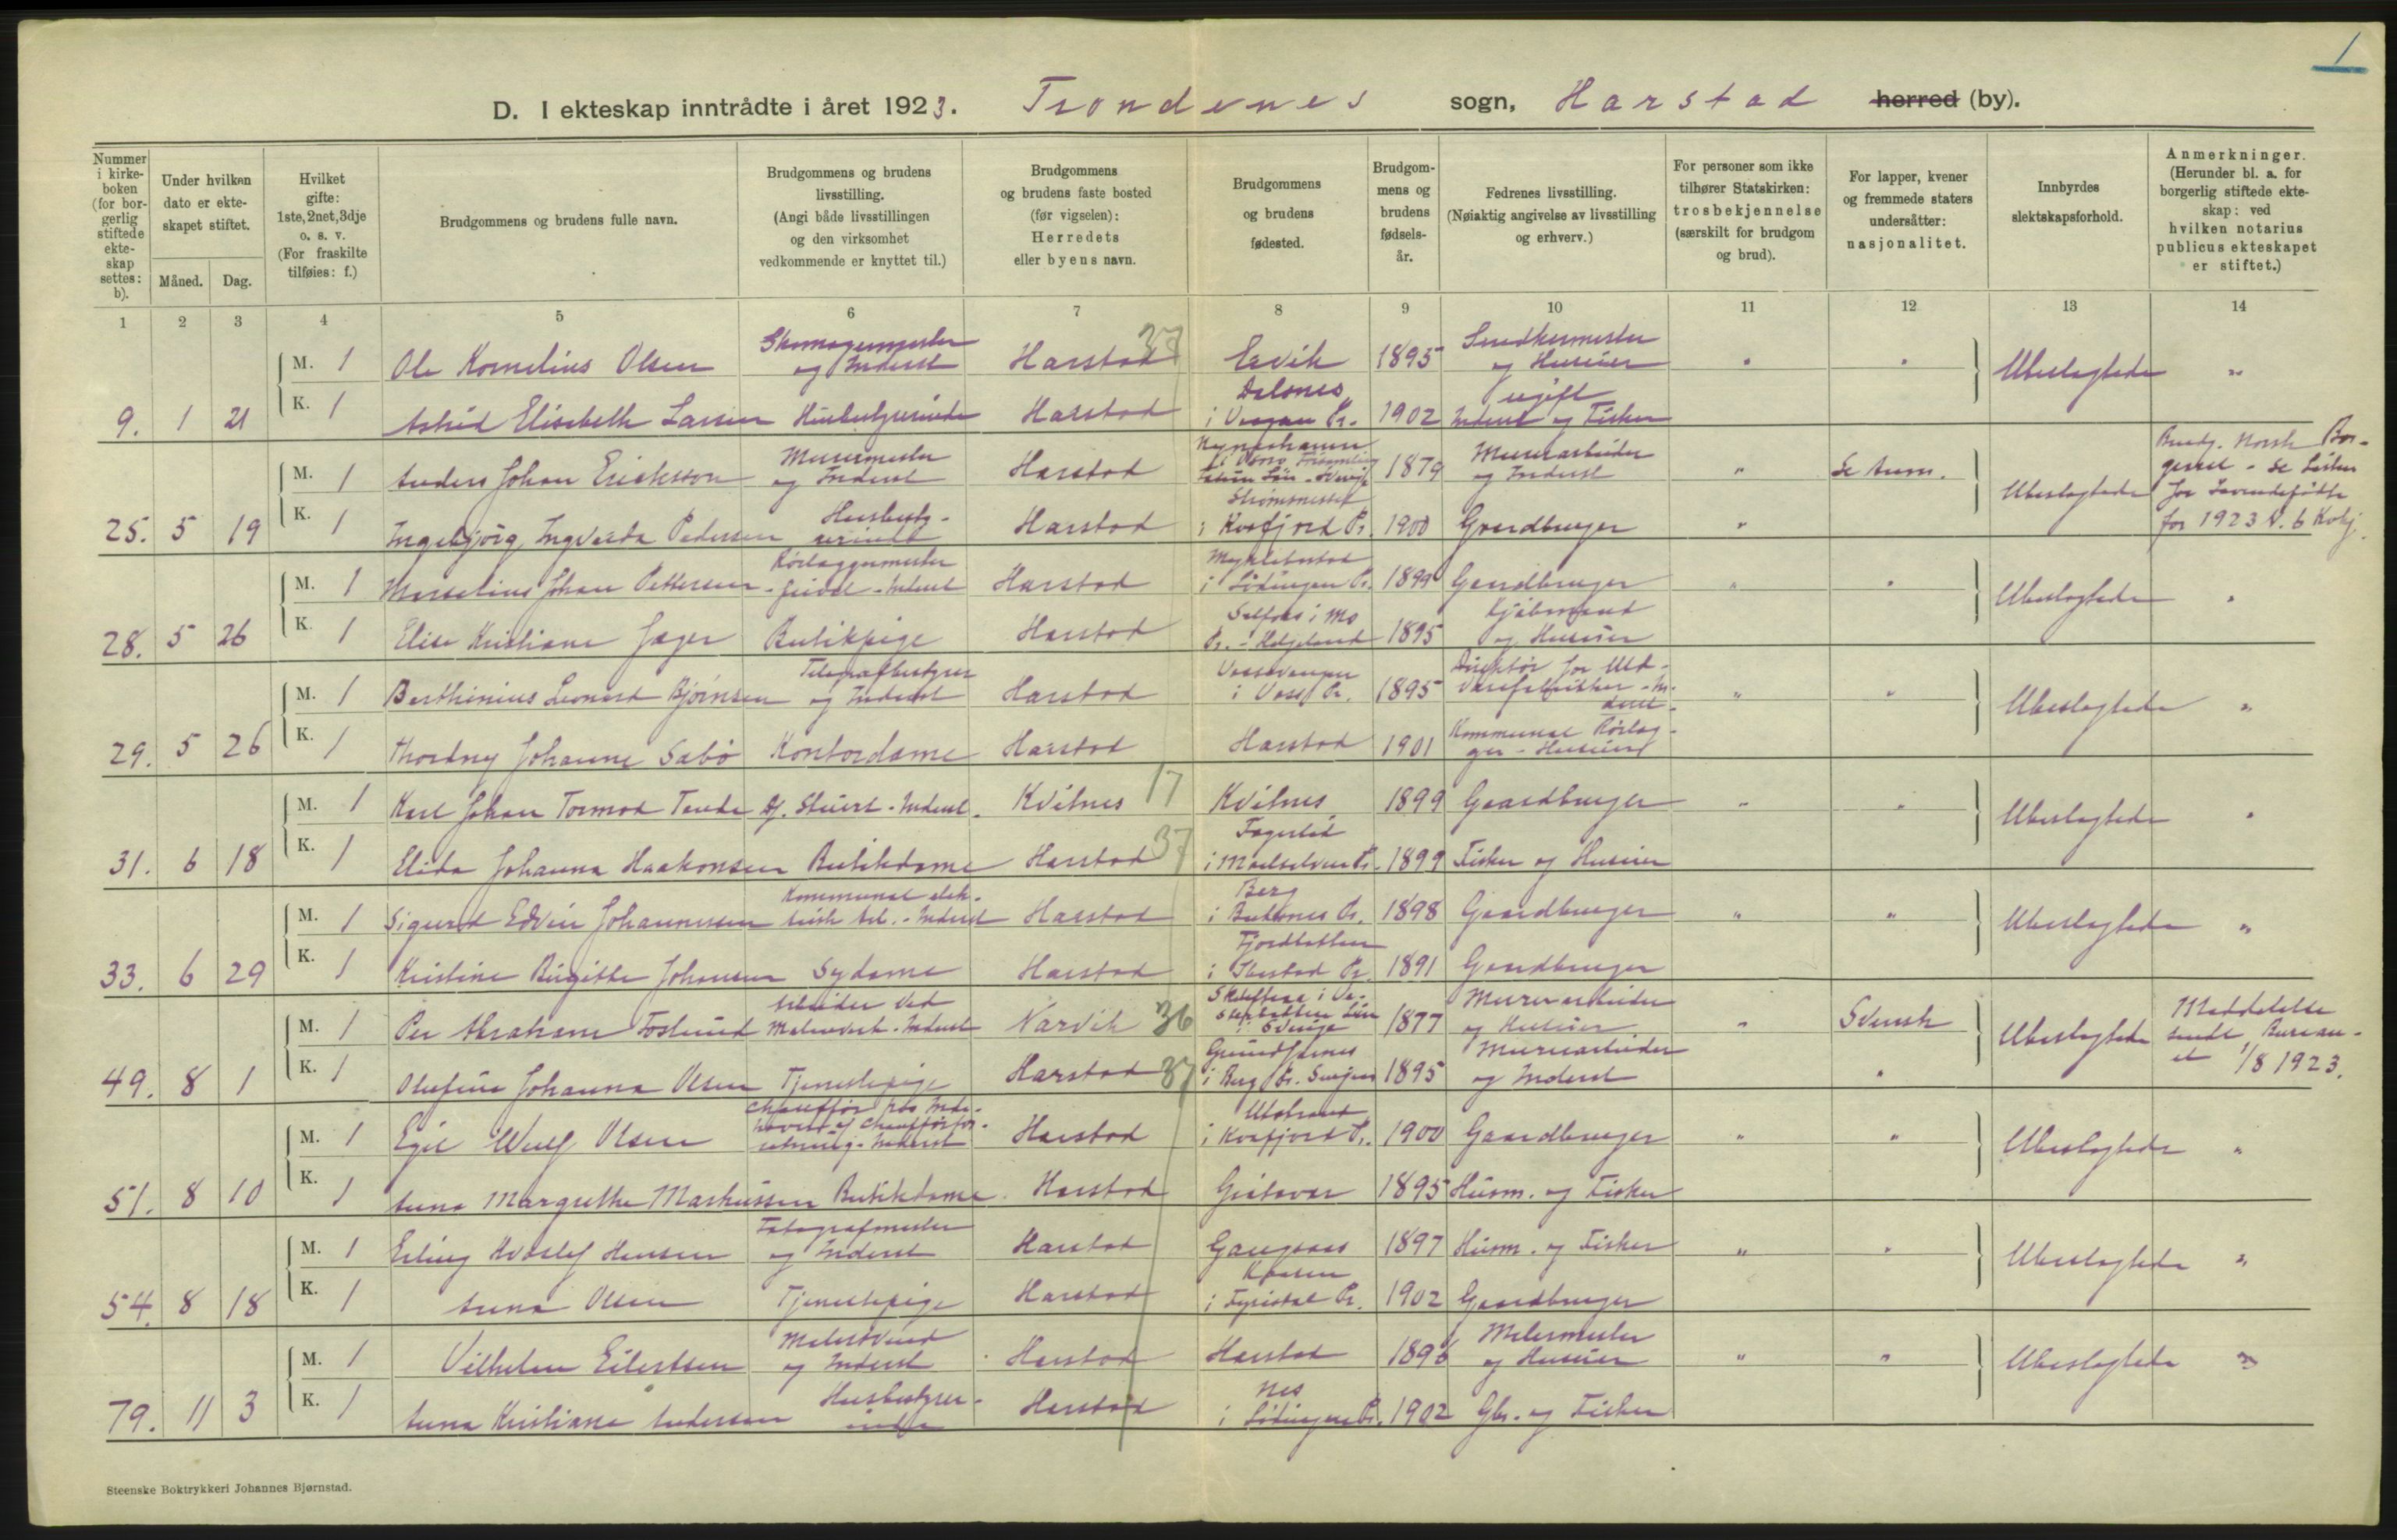 1
D. I ekteskap inntrådte i året 1923. Trondenes sogn, Harstad herred (by).
Nummer i kirke-boken (for bor-gerlig stiftede ekte-skap settes: b).
Under hvilken dato er ekte-skapet stiftet.
Måned. Dag.
Hvilket gifte: 1ste, 2net, 3dje o. s. v. (For fraskilte tilføies: f.)
Brudgommens og brudens fulle navn.
Brudgommens og brudens livsstilling. (Angi både livsstillingen og den virksomhet vedkommende er knyttet til.)
Brudgommens og brudens faste bosted (før vigselen): Herredets eller byens navn.
Brudgommens og brudens fødested.
Brudgom-mens og brudens fødsels-år.
Fedrenes livsstilling. (Nøiaktig angivelse av livsstilling og erhverv.)
For personer som ikke tilhører Statskirken: trosbekjennelse (særskilt for brudgom og brud).
For lapper, kvener og fremmede staters undersåtter: nasjonalitet.
Innbyrdes slektskapsforhold.
Anmerkninger. (Herunder bl. a. for borgerlig stiftede ekte-skap: ved hvilken notarius publicus ekteskapet er stiftet.)
1 2 3 4 5 6 7 8 9 10 11 12 13 14
M. 1 Ole Kornelius Olsen Skomagermester og Inderst Harstad 37 Ervik 1895 og Huseier " " Ubeslægtede "
9. 1 21 K. 1 Astrid Elisabeth Larsen Husbestyrerinde Harstad i Vaagan Pr. 1902 ugift Inderst og Fisker
M. 1 Anders Johan Eriksson Murermester og Inderst Harstad 1879 Murerarbeider og Inderst " Se Anm. Ubeslægtede Brudg. Norsk Bor-
25. 5 19 K. 1 Ingebjørg Ingvarda Pedersen Husbesty-rerinde Harstad i Kvæfjord Pr. 1900 Gaardbruger " for 1923 N. 6
M. 1 Marselius Johan Pettersen Rørlæggermester Inderst Harstad i Lødingen Pr. 1899 Gaardbruger " " Ubeslægtede "
28. 5 26 K. 1 Elise Kristiane Jæger Butikpige Harstad Selfors i Mo Pr. - Helgeland 1895 Kjøbmand og Huseier
M. 1 Berthinius Leonard Bjørnsen Telegrafbestyrer og Inderst Harstad Vossevangen i Voss Pr. 1895 Direktør for Uld-varefabrikker - In-derst. " " Ubeslægtede "
29. 5 26 K. 1 Thordny Johanne Sabø Kontordame Harstad Harstad 1901 Kommunal Rørlæg-ger - Huseier
M. 1 Karl Johan Tormod Tande Inderst. Kvitnes 17 Kvitnes 1899 Gaardbruger " " Ubeslægtede "
31. 6 18 K. 1 Elida Johanna Haakonsen Butikdame Harstad 37 Fagerlid i Maalselven Pr. 1899 Fisker og Huseier
M. 1 Sigurd Edvin Johannessen Kommunal elek-trisk arb. - Inderst Harstad Berg 1898 Gaardbruger " " Ubeslægtede "
33. 6 29 K. 1 Kristine Birgitte Johansen Sydame Harstad i Ibestad Pr. 1891 Gaardbruger
M. 1 Per Abraham Foslund Arbeider ved Malmverk - Inderst Narvik 36 Skelleftea i Sverige 1877 Murerarbeider og Huseier " Svensk Ubeslægtede Meddelelse sendt Bureau-et 1/8 1923.
49. 8 1 K. 1 Olufine Johanna Olsen Tjenestepige Harstad 37 i Berg Pr. Senjen 1895 Murerarbeider og Inderst "
M. 1 Egil Wulf Olsen Harstad i Kvæfjord Pr. 1900 Gaardbruger " " Ubeslægtede "
51. 8 10 K. 1 Anna Margrethe Markussen Butikdame Harstad Grøtavær 1895 Husm. og Fisker
M. 1 Erling Hensen Fotografmester og Inderst Harstad Gangsaas 1897 Husm. og Fisker " " Ubeslægtede "
54. 8 18 K. 1 Anna Olsen Tjenestepige Harstad 1902 Gaardbruger
M. 1 Vilhelm Eilertsen Malersvend og Inderst Harstad Harstad 1896 Malermester og Huseier " " Ubeslægtede "
79. 11 3 K. 1 Anna Kristiane Andersen Husbestyrer-inde Harstad Nes i Lødingen Pr. 1902 Gbr. og Fisker
Steenske Boktrykkeri Johannes Bjørnstad.